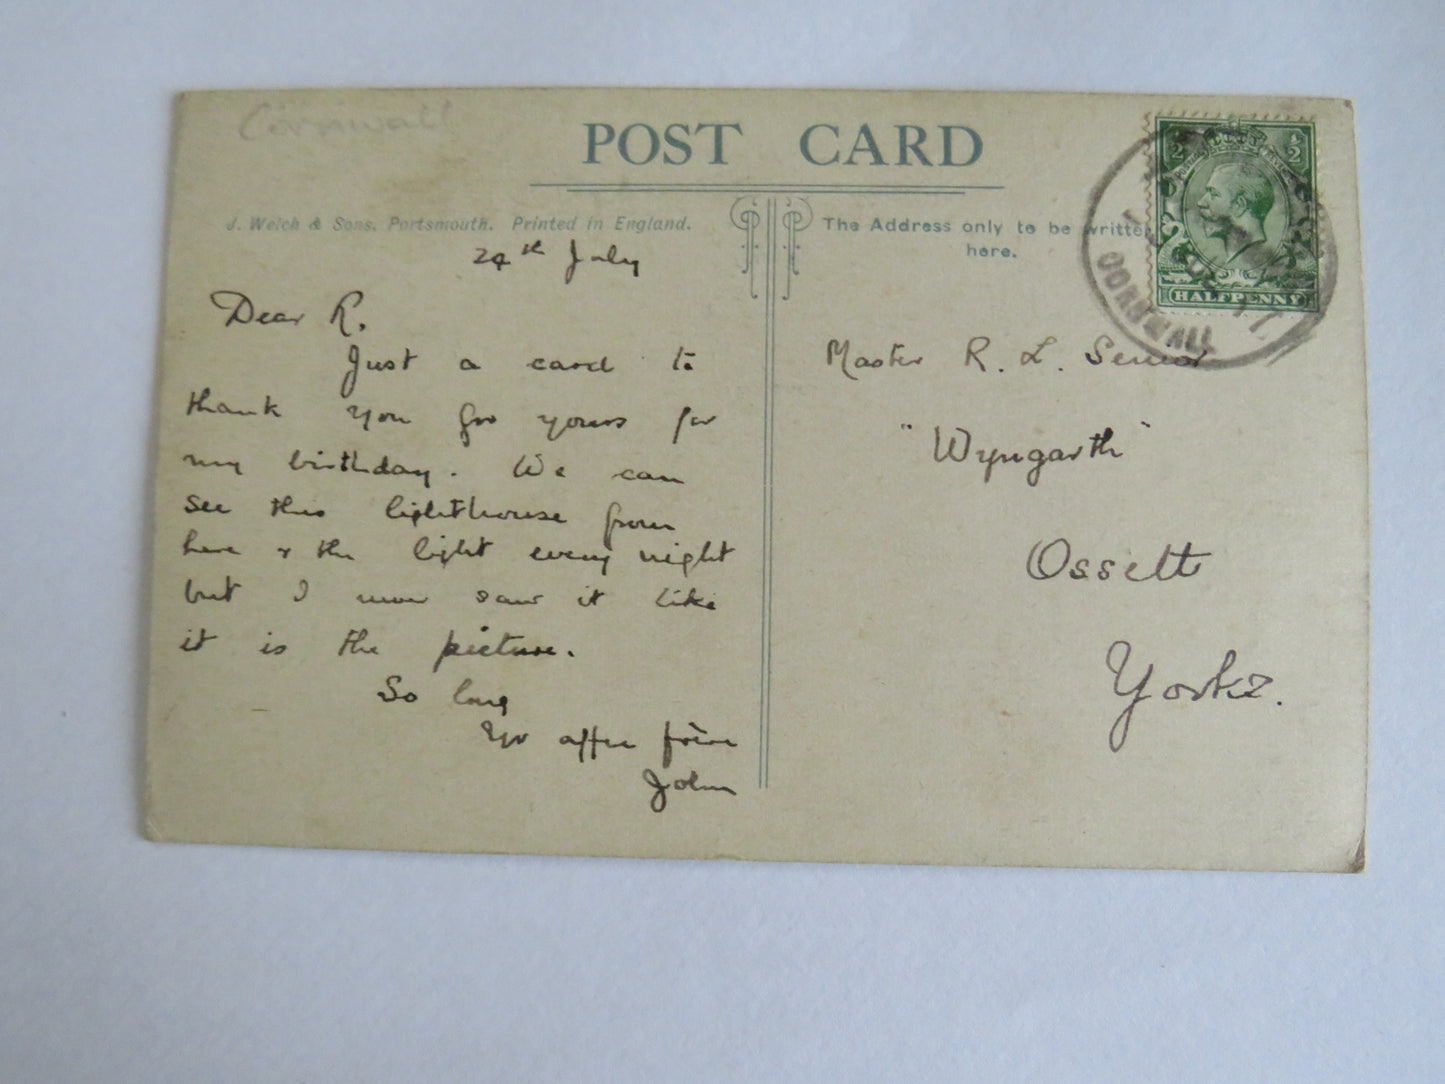 Cornwall
POST CARD
J. Welch & Sons, Portsmouth. Printed in England.
The Address only to be written
here.
1/2 1/2
HALFPENNY
CORNWALL
24th July
Dear R.
Just a card to
thank you for yours for
my birthday. We can
see this lighthouse from
here & the light every night
but I never saw it like
it is the picture.
So long
Yr affec
John
Master R. L. Senior
"Wyngarth"
Ossett
Yorks.